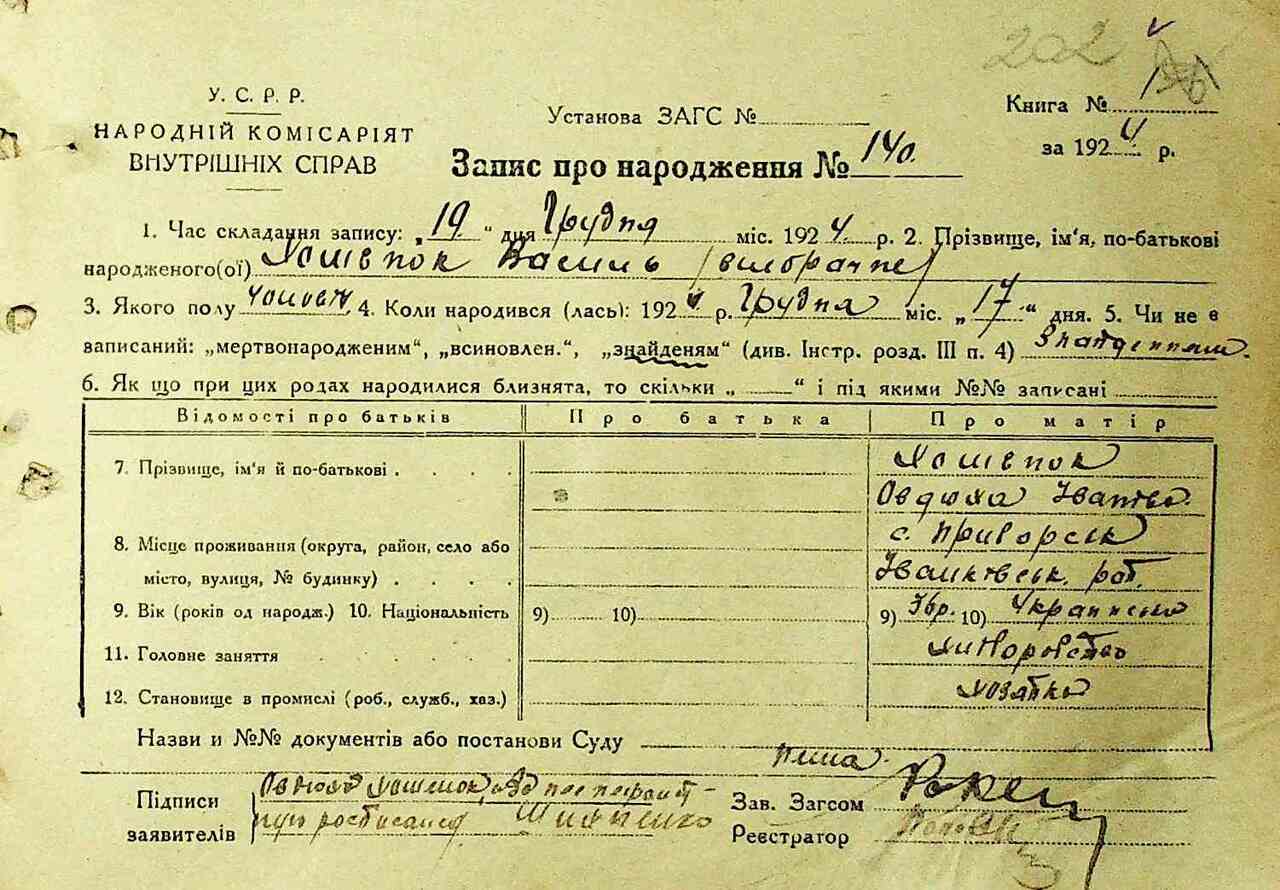 202
У. С. Р. Р.
НАРОДНІЙ КОМІСАРІЯТ
ВНУТРІШНІХ СПРАВ
Установа ЗАГС №
Книга № 1
за 1924 р.
Запис про народження № 140.
1. Час складання запису: „19“ дня Грудня міс. 1924 р. 2. Прізвище, ім'я, по-батькові
народженого(ої) Хошенок Василь
3. Якого полу чоловч, 4. Коли народився (лась): 1924 р. Грудня міс. „17“ дня. 5. Чи не є
записаний: „мертвонародженим“, „всиновлен.“, „знайденям“ (див. Інстр. розд. III п. 4)
6. Як що при цих родах народилися близнята, то скільки „ “ і під якими №№ записані
Відомості про батьків Про батька Про матір
7. Прізвище, ім'я й по-батькові . . . . Хошенок
Овдюха Іванівс.
8. Місце проживання (округа, район, село або с. Приворськ
місто, вулиця, № будинку) . . . . Іванківськ. рай.
9. Вік (років од народж.) 10. Національність 9) 10) 9) 10) Українська
11. Головне заняття . . . . Хліборобство
12. Становище в промислі (роб., служб., хаз.) хозяйка
Назви и №№ документів або постанови Суду
Підписи Овдюха Хошенок,
заявителів росписался
Зав. Загсом
Реєстратор